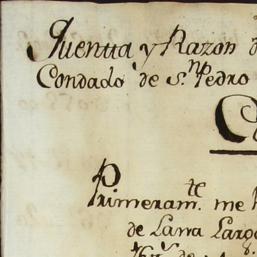 Quentta y Razon d
Condado de S.n Pedro
C
Primeram.te me h
de Lana Larga